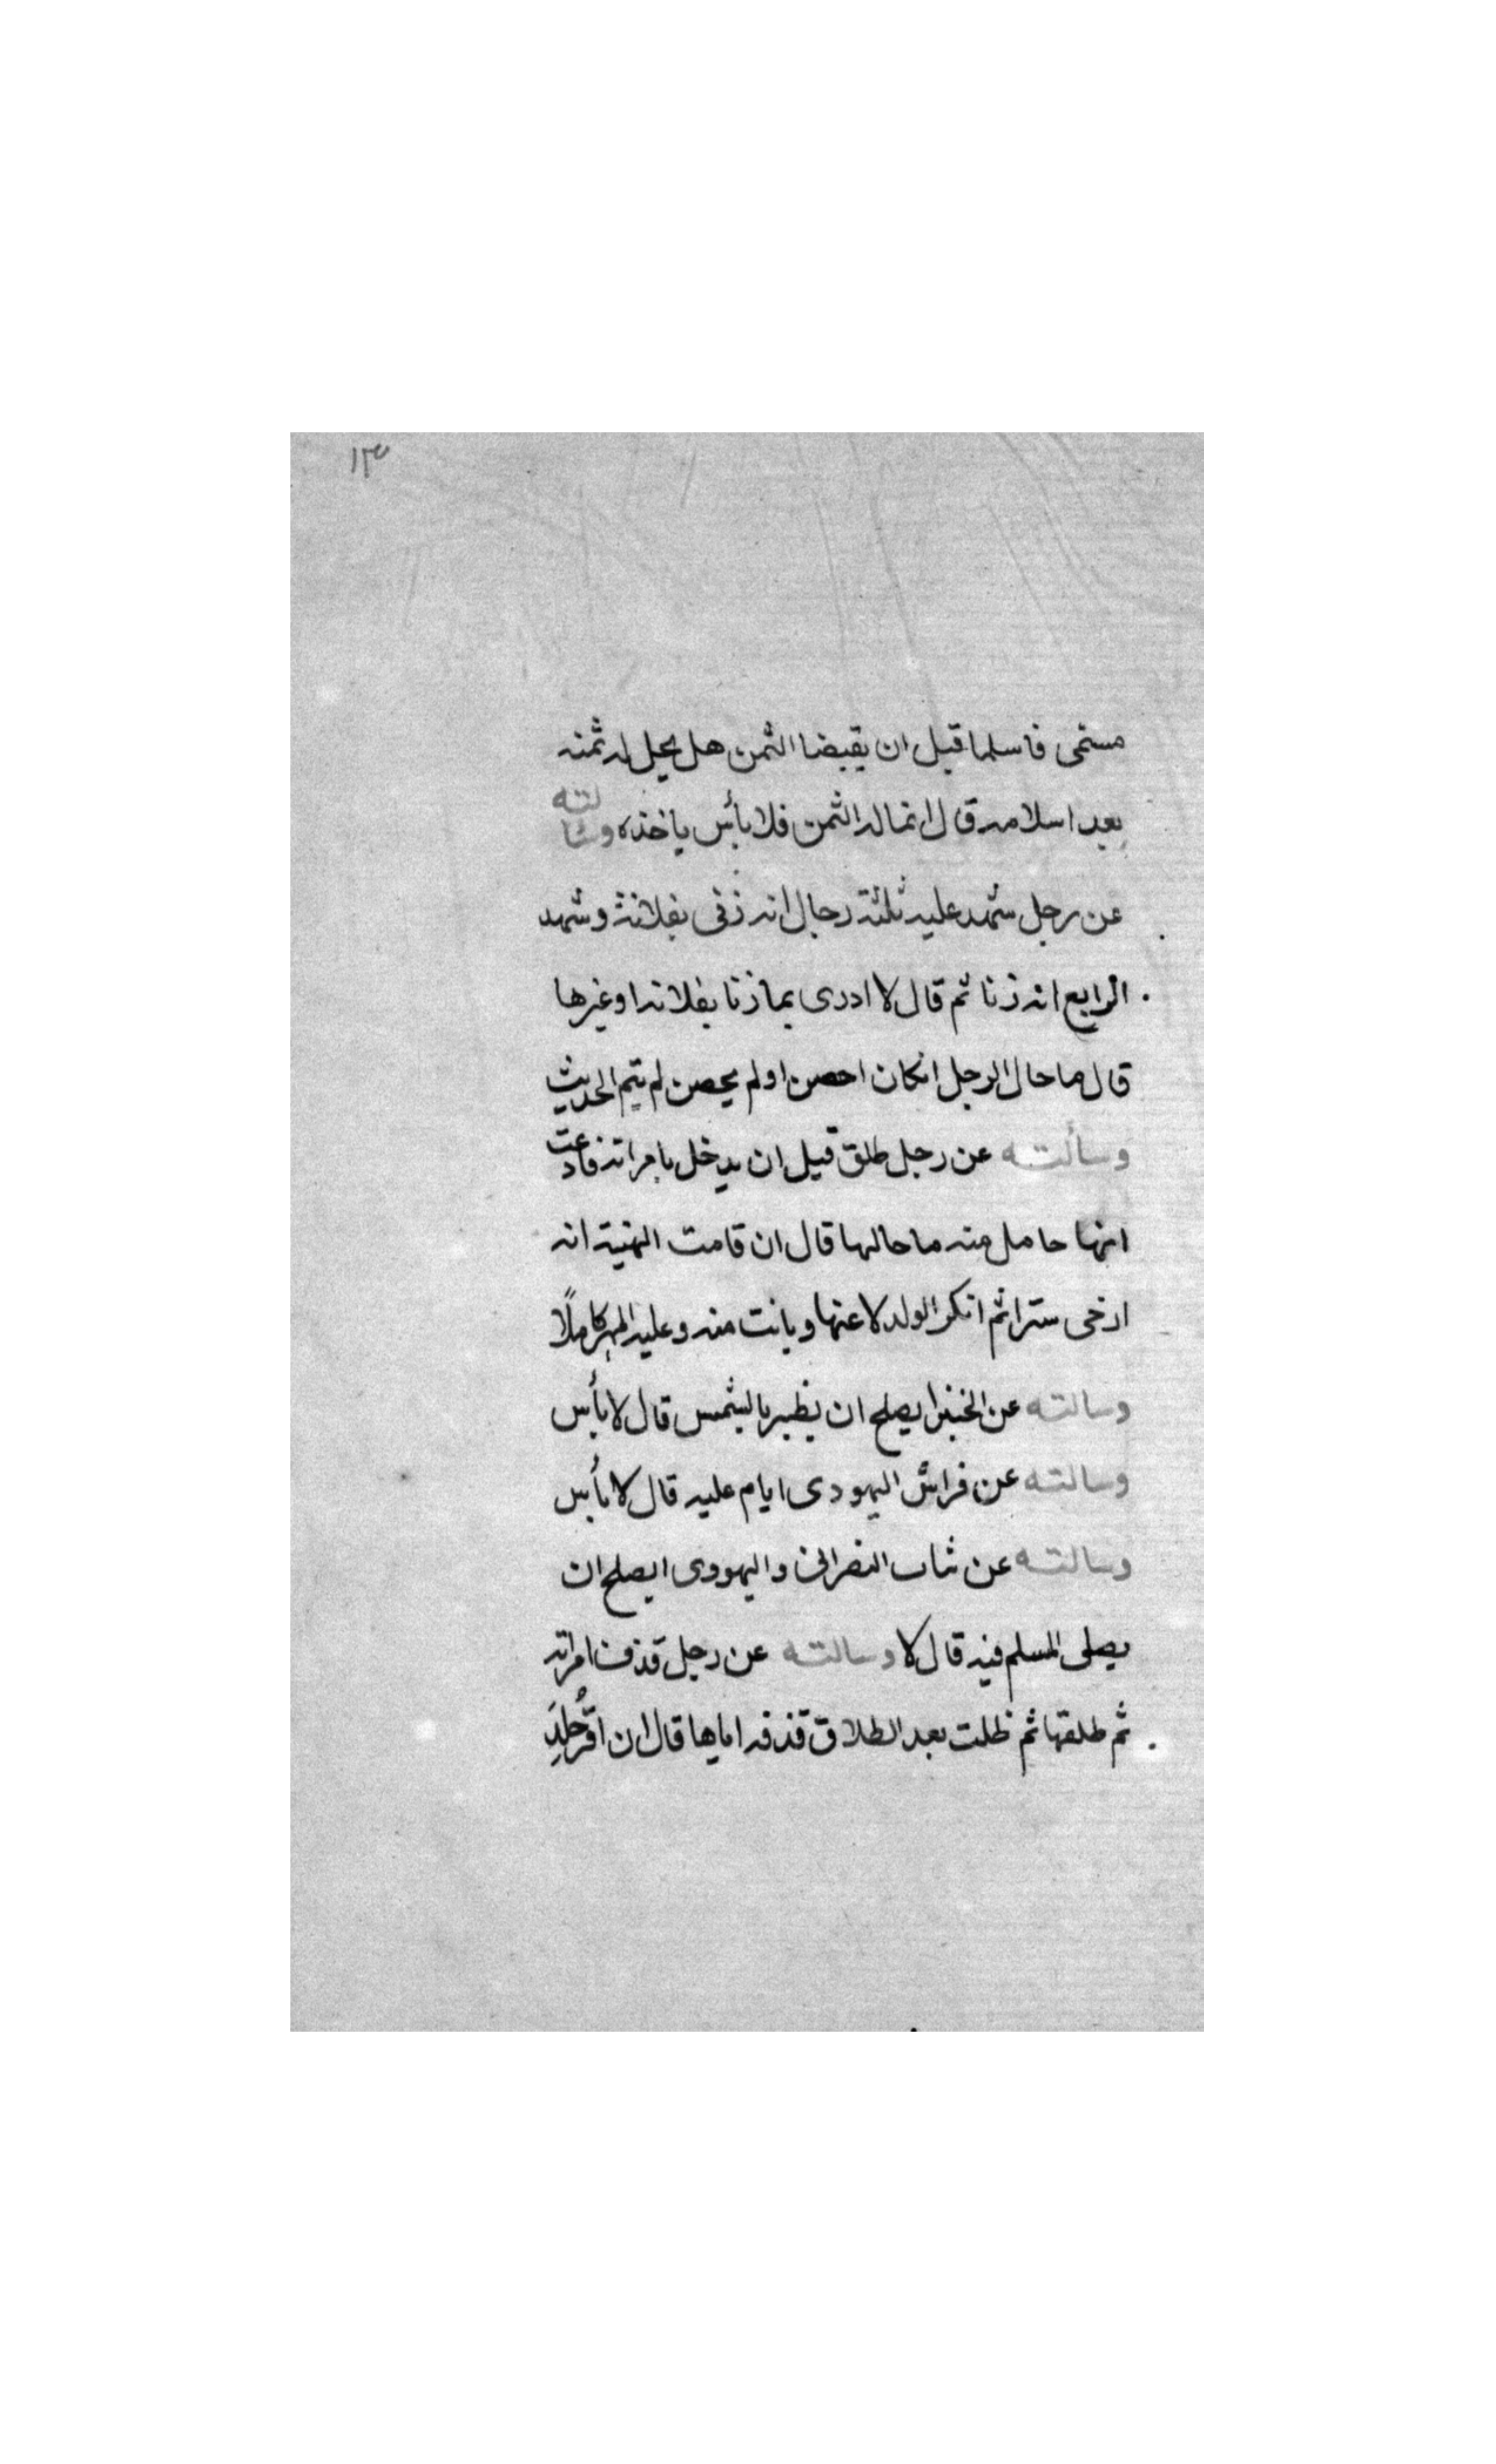 ١٣
مسمى فاسلما قبل ان يقبضا الثمن هل يحل له ثمنه
بعد اسلامه قال انماله الثمن فلا بأس ياخذه وسئالته
عن رجل شهد عليه ثلثة رجال انه زنى بفلانة وشهد
الرابع انه زنا ثم قال لا ادرى بما زنا بفلانه او غيرها
قال ما حال الرجل انكان احصن او لم يحصن لم يتم الحديث
وسألته عن رجل طلق قبل ان يدخل بامراته فادعت
انها حامل منه ما حالها قال ان قامت البينة انه
ارخى سترا ثم انكر الولد لاعنها وبانت منه وعليه المهر كاملًا
وسالته عن الخبز ايصلح ان يطبر بالشمس قال لا بأس
وسالته عن فراش اليهودى اينام عليه قال لا بأس
وسالته عن ثياب النصرانى واليهودى ايصلح ان
يصلى المسلم فيه قال لا وسالته عن رجل قذف امراته
ثم طلقها ثم ظلت بعد الطلاق قذفه اماها قال ان اقرّ جُلِدَ